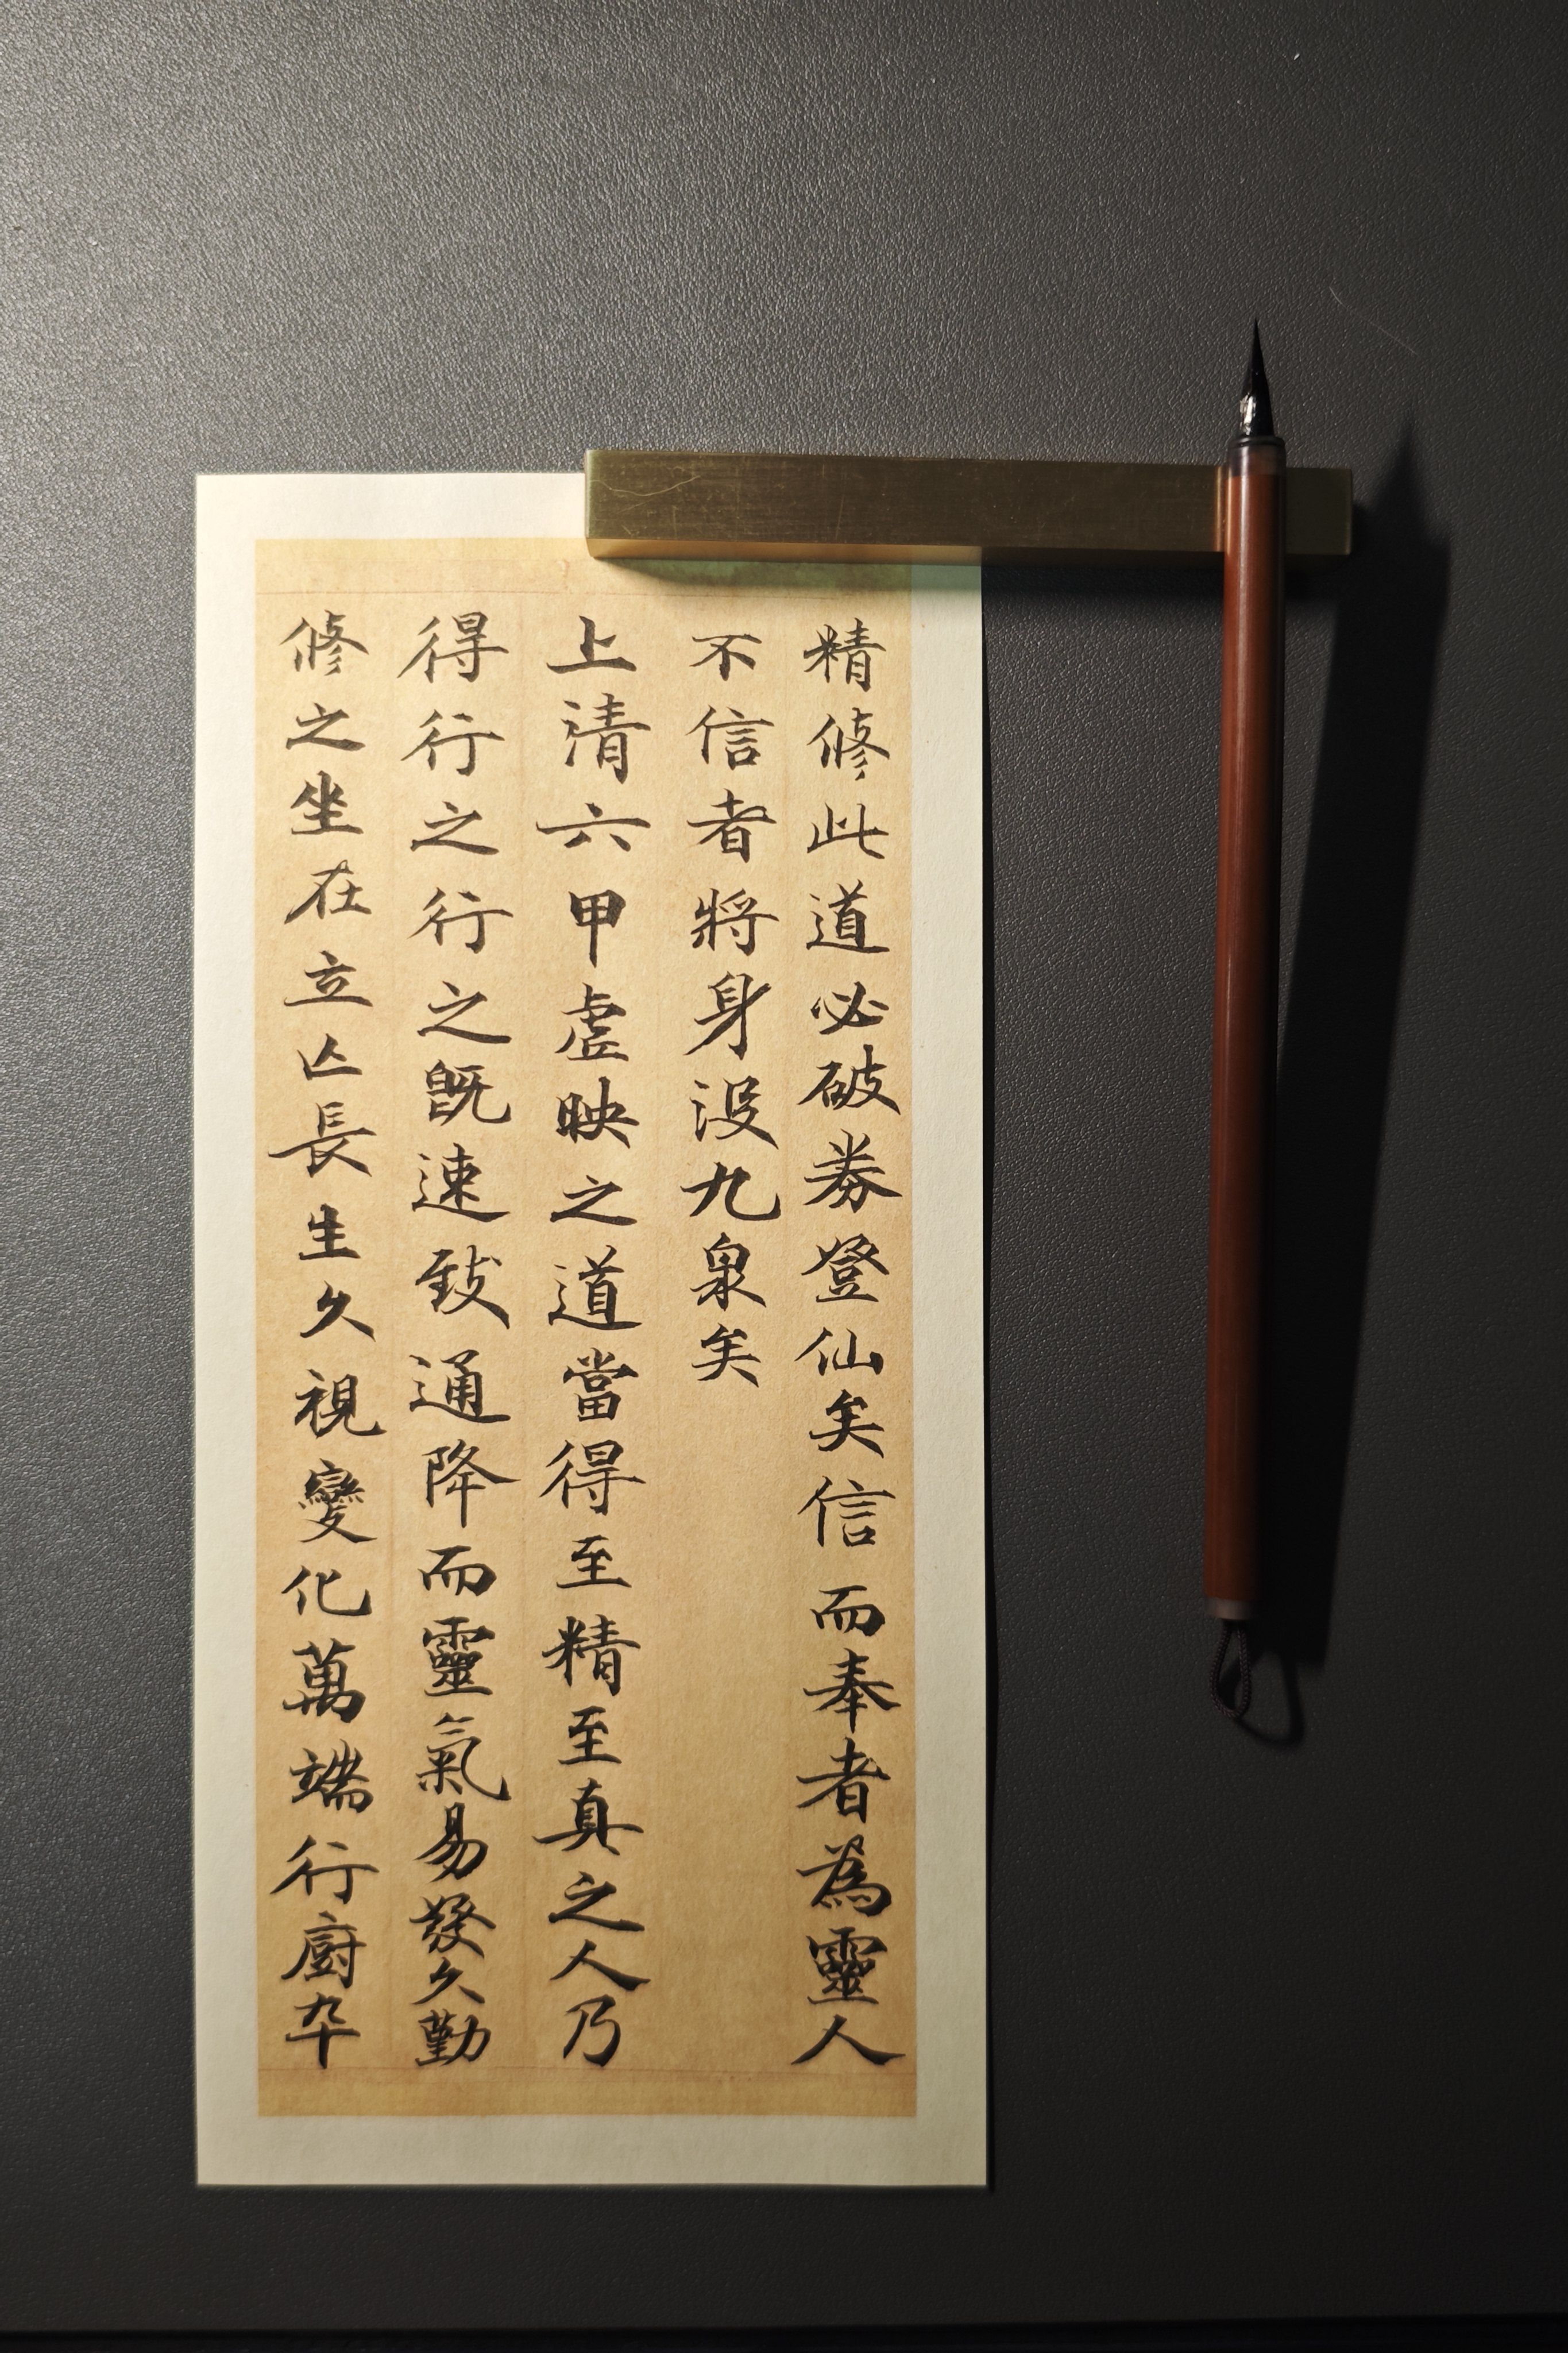 精修此道必破券登仙矣信而奉者為靈人
不信者將身没九泉矣
上清六甲虛映之道當得至精至真之人乃
得行之行之既速致通降而靈氣易發久勤
修之坐在立亾長生久視變化萬端行廚卒